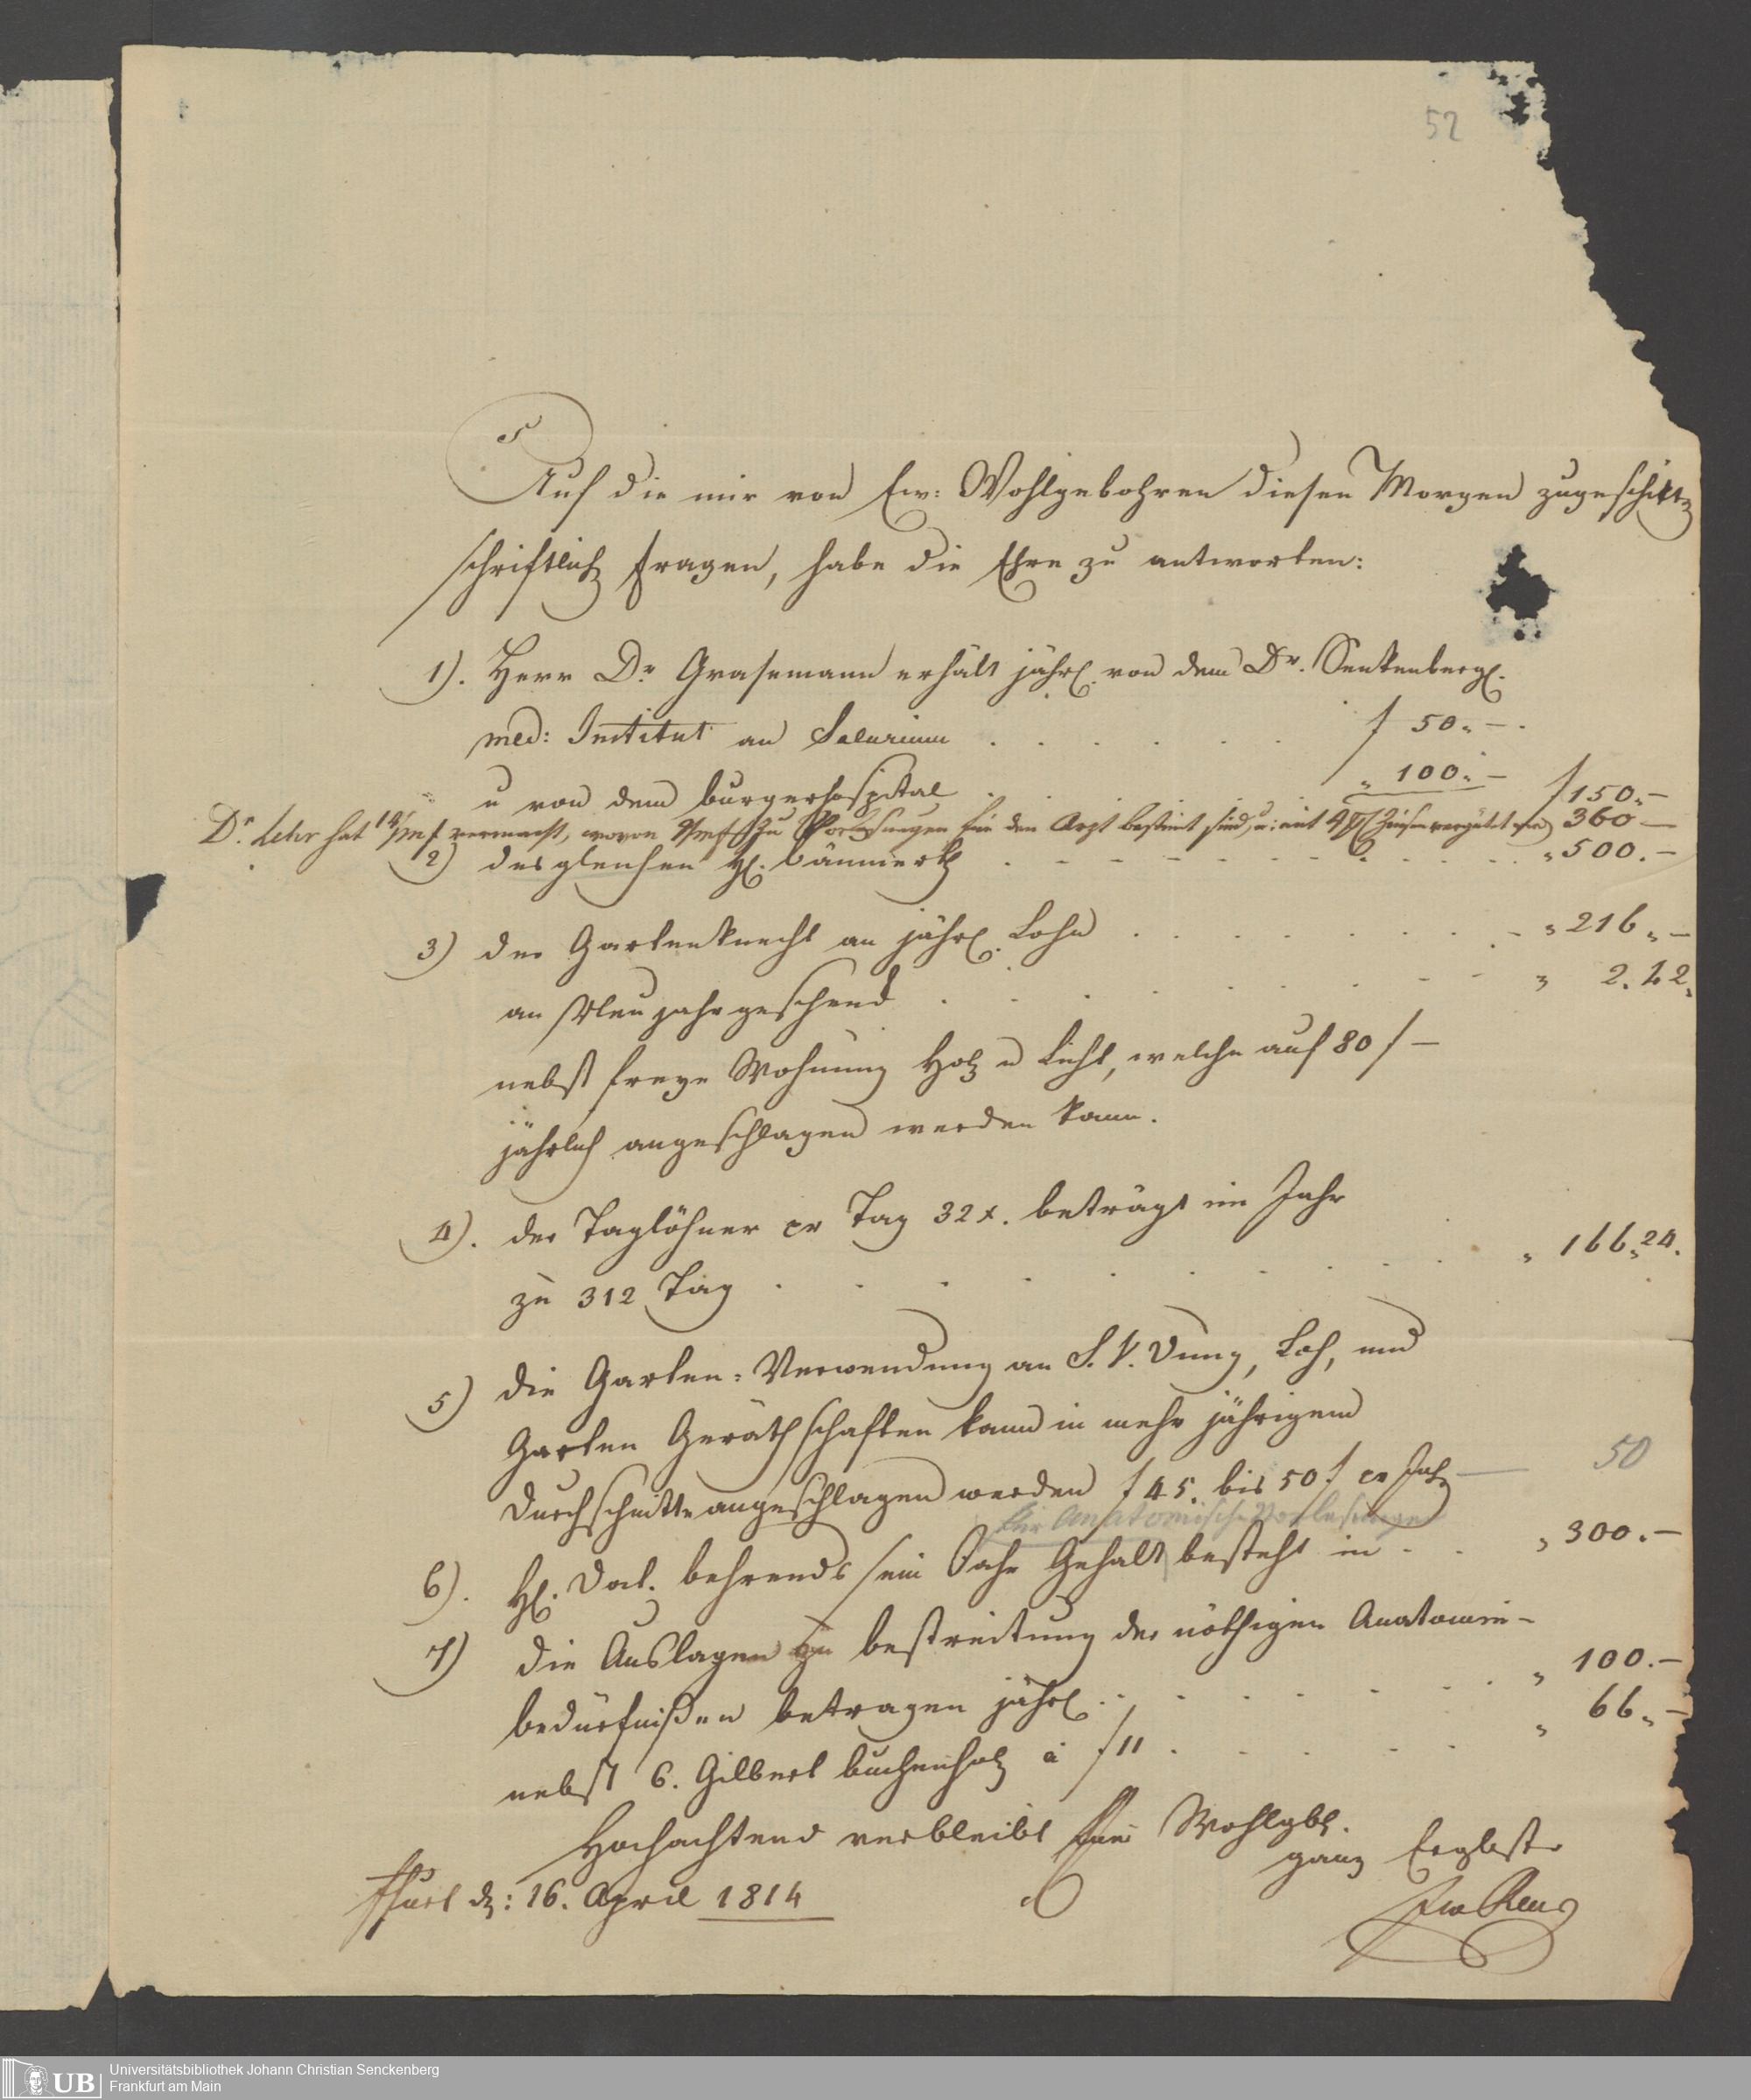 52
Auf die mir von Ew: Wohlgebohren diesen Morgen zugeschikte
schriftlich Fragen, habe die Ehre zu antworten:
1). Herr Dr Grasemann erhält jährl. von dem Dr. Senkenbergl.
med: Institut an Salarium . . . . . f 50.-.
u von dem burgerhospital . . . „ 100.- f150.-
Dr. Lehr hat vermacht, wovon zu Vorlesungen für den Arzt bestimt sind, u: mit 360 –
2) desgleichen Hl. Bäumerth . . . . . „ 500.-
3) der Gartenknecht an jährl. Lohn . . . . . „ 216„-
an Neujahrgeschenck . . . . . „ 2.42.
nebst freye Wohnung Holz u Licht, welche auf 80 f –
jährlich angeschlagen werden kann.
4). der Taglöhner pr Tag 32 x. beträgt im Jahr
zu 312 Tag . . . . . „ 166„24.
5) die Garten=Verwendung an S. V. Dung, Loh, und
Garten Geräthschaften kann in mehr jährigem
Durchschnitte angeschlagen werden f 45. bis 50 f pr Jahr — 50
für Anatomische Vorlesungen
6). Hl. Doct. behrends sein Jahr Gehalt besteht in . . „ 300.-
7) die Auslagen zu bestreitung der nöthigen Anatomie-
bedürfnißen betragen jährl. . . . . . „ 100.-
nebst 6. Gilbert buchenholz à f 11 . . . . . „ 66„-
Hochachtend verbleibt Euer Wohlgb.
ganz Ergbster
Ffurt d: 16. April 1814
UB
Universitätsbibliothek Johann Christian Senckenberg
Frankfurt am Main